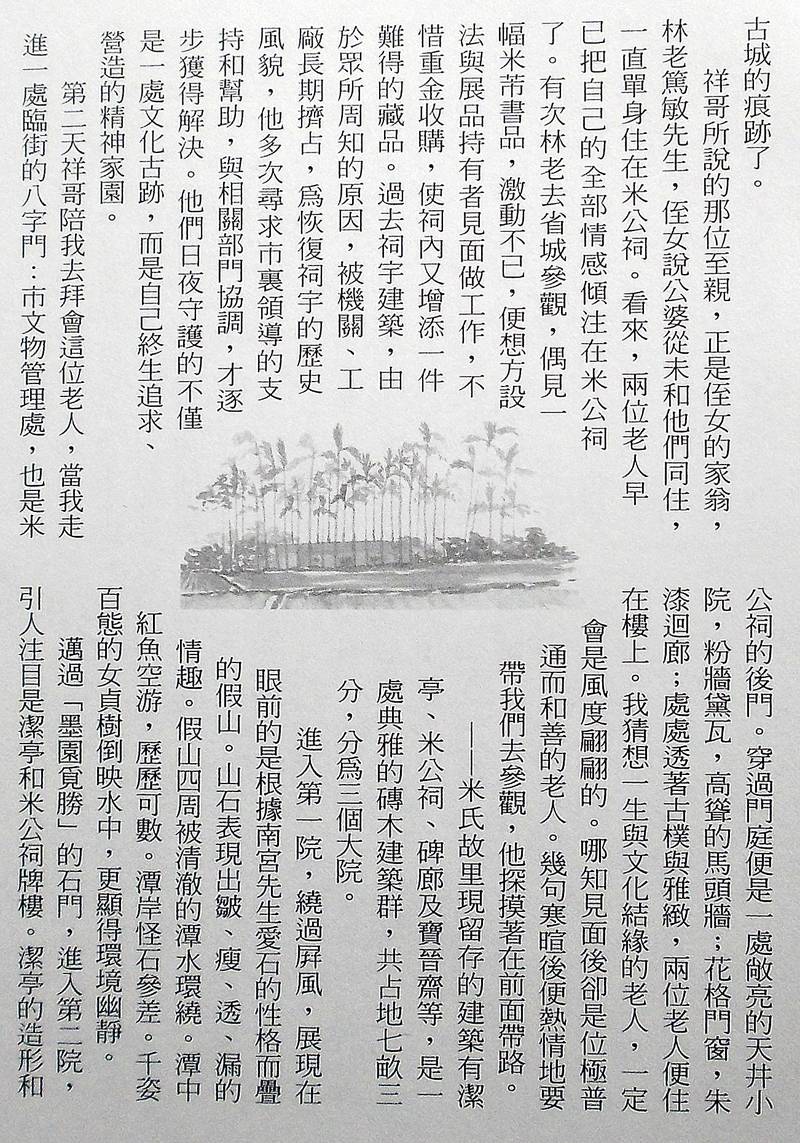 古城的痕跡了。
祥哥所說的那位至親，正是侄女的家翁，
林老篤敏先生，侄女說公婆從未和他們同住，
一直單身住在米公祠。看來，兩位老人早
已把自己的全部情感傾注在米公祠
了。有次林老去省城參觀，偶見一
幅米芾書品，激動不已，便想方設
法與展品持有者見面做工作，不
惜重金收購，使祠內又增添一件
難得的藏品。過去祠宇建築，由
於眾所周知的原因，被機關、工
廠長期擠占，爲恢復祠宇的歷史
風貌，他多次尋求市裏領導的支
持和幫助，與相關部門協調，才逐
步獲得解決。他們日夜守護的不僅
是一處文化古跡，而是自己終生追求、
營造的精神家園。
第二天祥哥陪我去拜會這位老人，當我走
進一處臨街的八字門：市文物管理處，也是米
公祠的後門。穿過門庭便是一處敞亮的天井小
院，粉牆黛瓦，高聳的馬頭牆；花格門窗，朱
漆迴廊；處處透著古樸與雅緻，兩位老人便住
在樓上。我猜想一生與文化結緣的老人，一定
會是風度翩翩的。哪知見面後卻是位極普
通而和善的老人。幾句寒暄後便熱情地要
帶我們去參觀，他探摸著在前面帶路。
——米氏故里現留存的建築有潔
亭、米公祠、碑廊及寶晉齋等，是一
處典雅的磚木建築群，共占地七畝三
分，分爲三個大院。
進入第一院，繞過屏風，展現在
眼前的是根據南宮先生愛石的性格而疊
的假山。山石表現出皺、瘦、透、漏的
情趣。假山四周被清澈的潭水環繞。潭中
紅魚空游，歷歷可數。潭岸怪石參差。千姿
百態的女貞樹倒映水中，更顯得環境幽靜。
邁過「墨園覓勝」的石門，進入第二院，
引人注目是潔亭和米公祠牌樓。潔亭的造形和